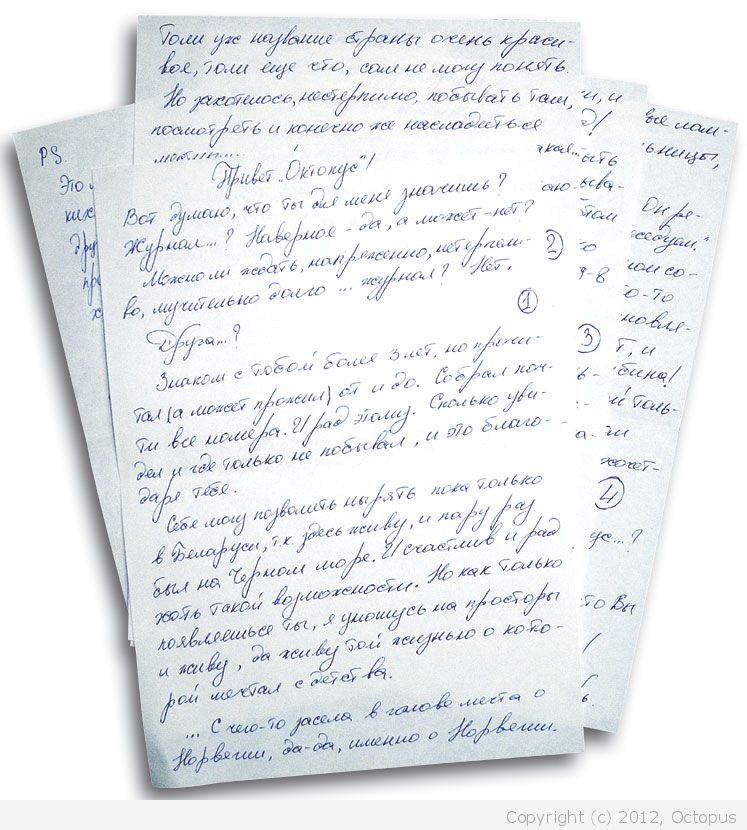 Толи уж название страны очень краси-
вое, толи еще что, сам не могу понять.
Но захотелось, нестерпимо, побывать там,
посмотреть и конечно же насладиться
P.S.
Это
Привет "Октопус"!
Вот думаю, что ты для меня значишь?
Журнал...? Наверное - да, а может - нет?
Можно ли ждать, напряженно, нетерпели-
во, мучительно долго ... журнал? Нет.
①
Друга...?
Знаком с тобой более 3 лет, но прочи-
тал (а может прожил) от и до. Собрал поч-
ти все номера. И рад этому. Сколько уви-
дел и где только не побывал, и это благо-
даря тебе.
Себе могу позволить нырять пока только
в Беларуси, т.к. здесь живу, и пару раз
был на Черном море. И счастлив и рад
хоть такой возможности. Но как только
появляешься ты, я уношусь на просторы
и живу, да живу той жизнью о кото-
рой мечтал с детства.
... С чего-то засела в голове мечта о
Норвегии, да-да, именно о Норвегии.
②
③
④
Он ре-
Вы
Copyright (c) 2012, Octopus